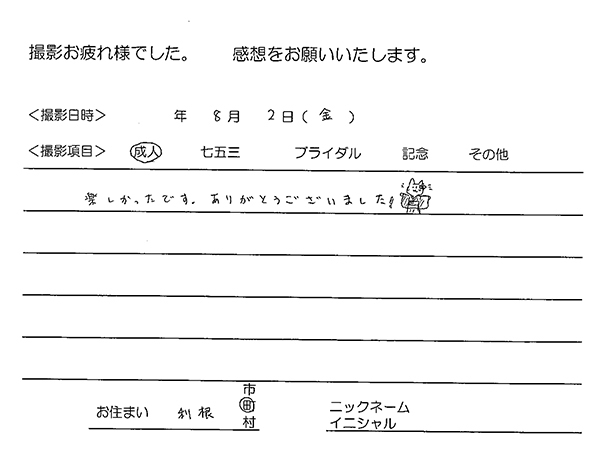 撮影お疲れ様でした。 感想をお願いいたします。
＜撮影日時＞ 年 8月 2日(金)
＜撮影項目＞ 成人 七五三 ブライダル 記念 その他
楽しかったです。ありがとうございました!
お住まい 利根 市 町 村
ニックネーム
イニシャル